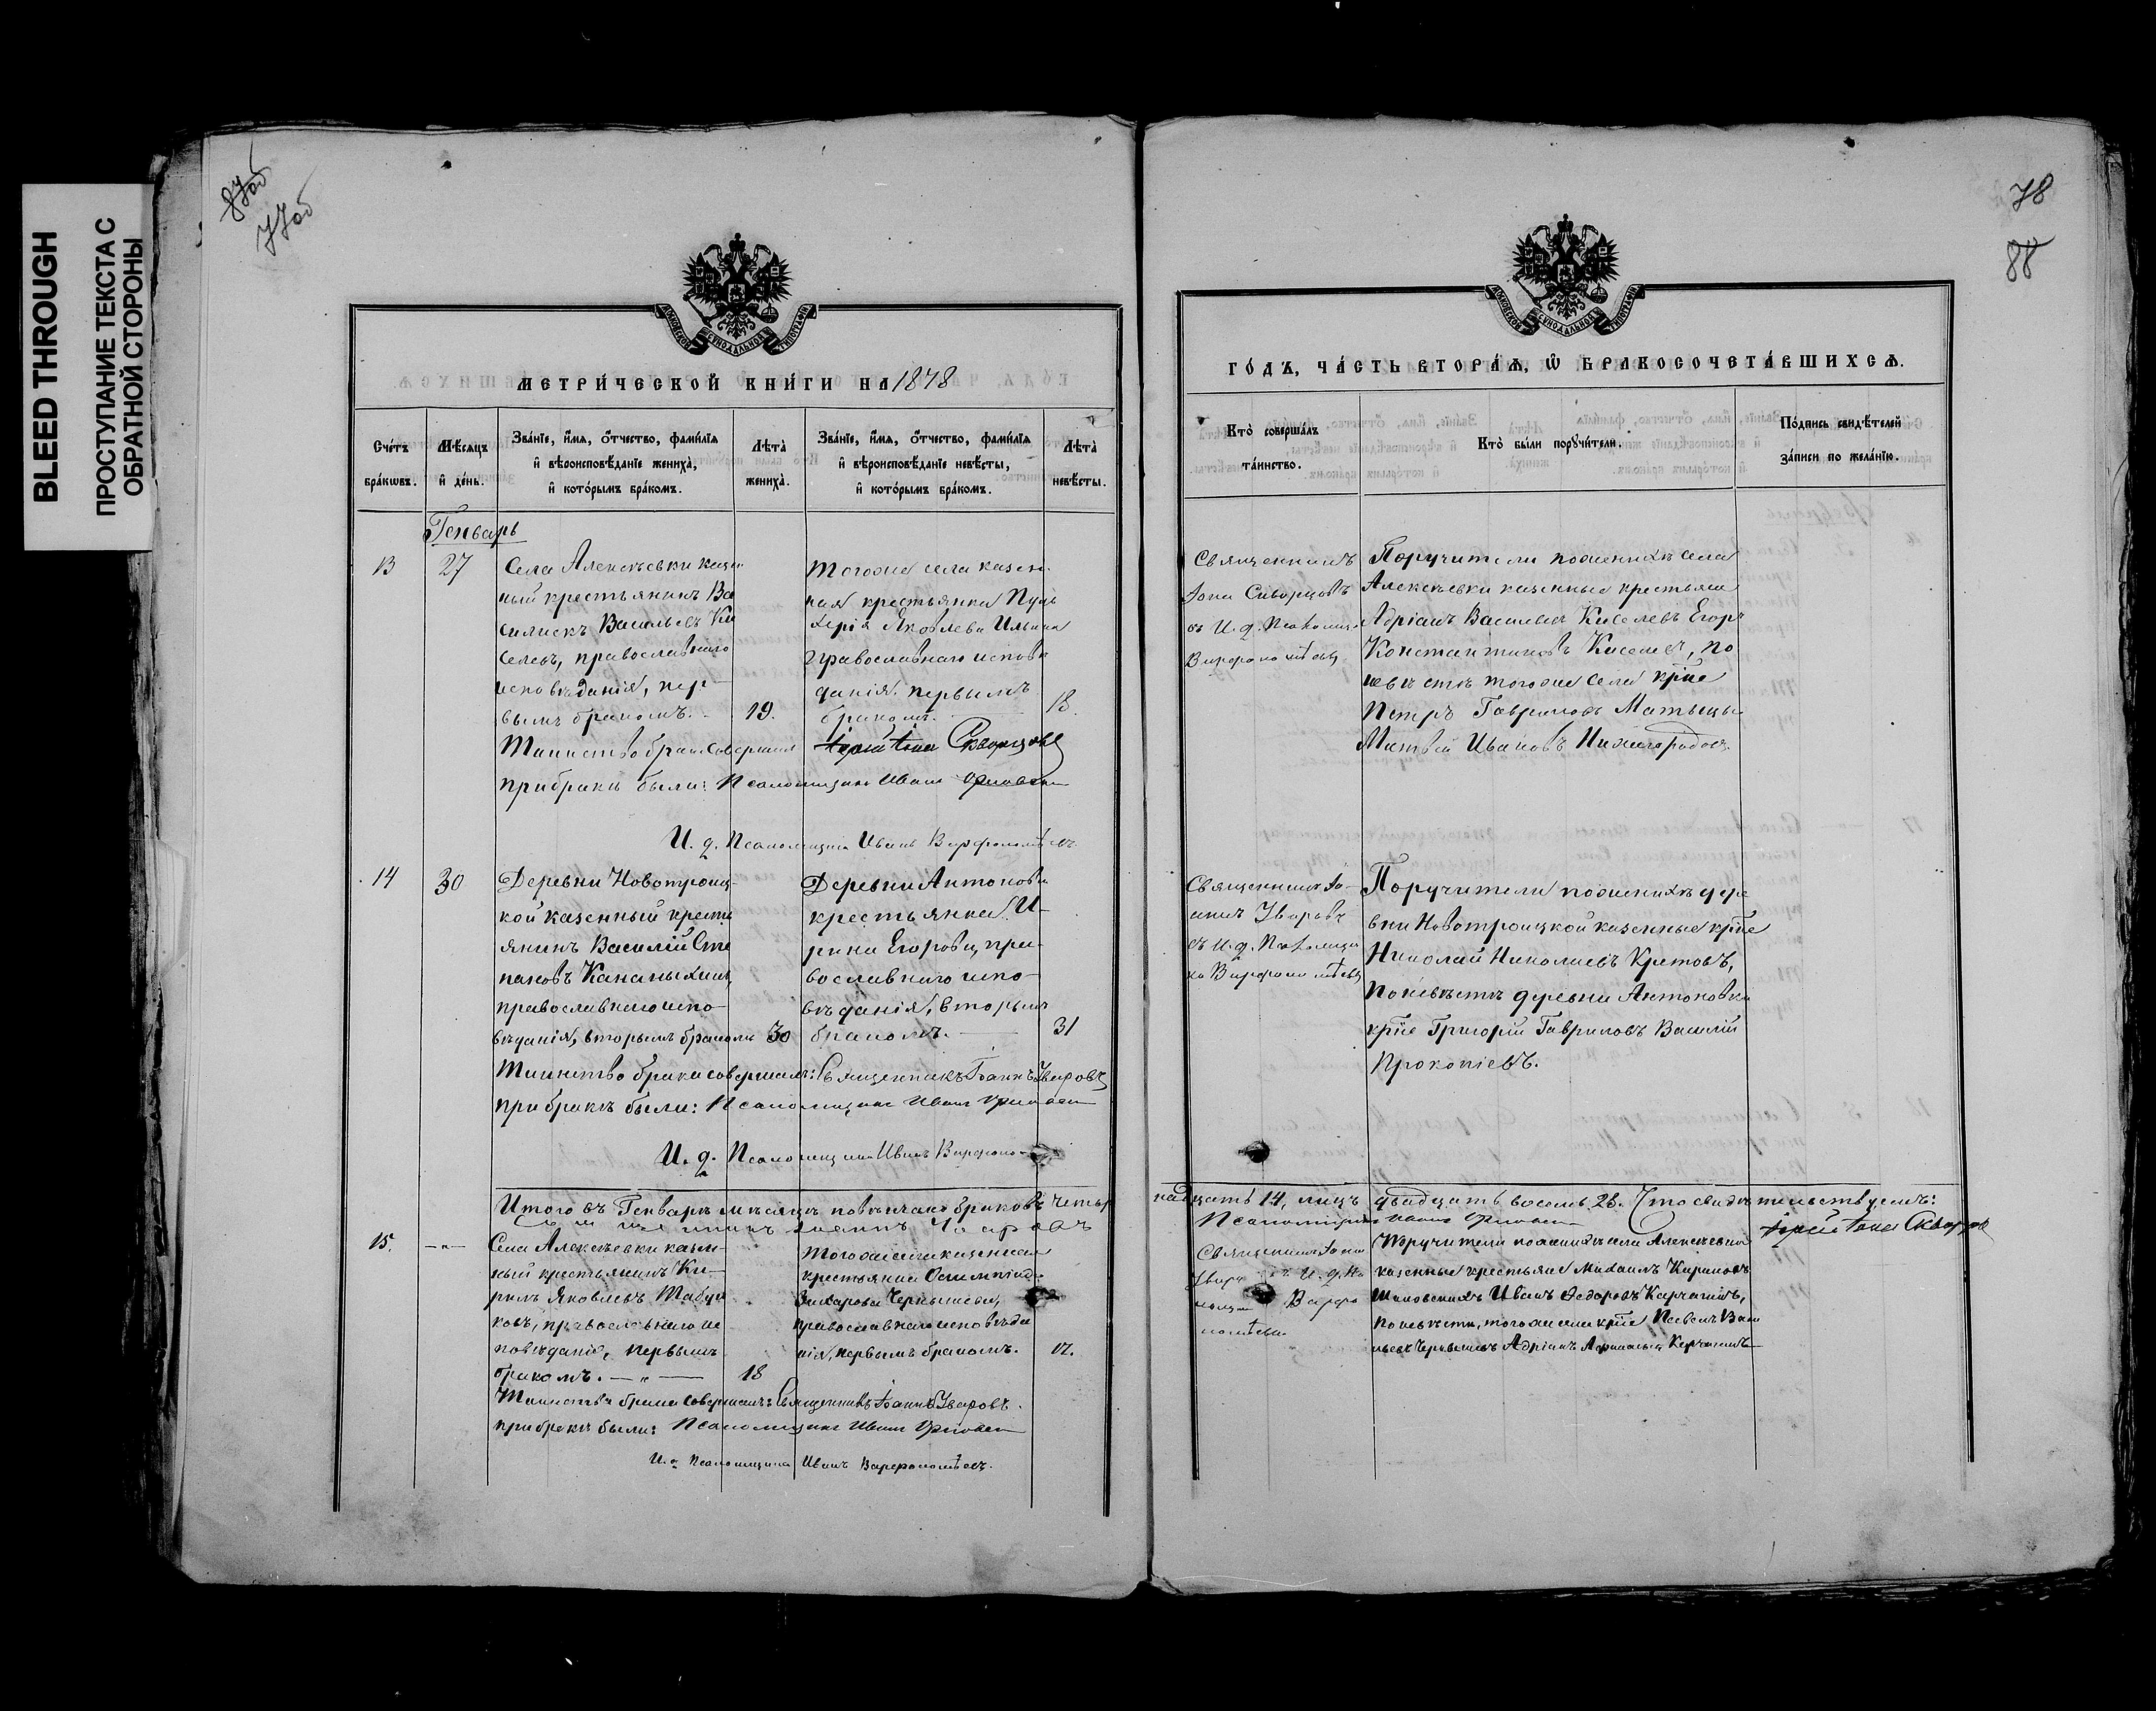 BLEED THROUGH
ПРОСТУПАНИЕ ТЕКСТА С
ОБРАТНОЙ СТОРОНЫ
87об
77об
МОСКОВСКОЙ СУНОДАЛЬНОЙ ТИПОГРАФІИ
МЕТРИ́ЧЕСКОЙ КНИ́ГИ НА 1878
Сче́тъ бра́кѡвъ.
Мѣ́сяцъ и҆ де́нь.
Зва́нїе, и҆́мѧ, ѻ҆́тчество, фами́лїѧ
и҆ вѣроисповѣ́данїе жениха̀,
и҆ кото́рымъ бра́комъ.
Лѣта̀ жениха̀.
Зва́нїе, и҆́мѧ, ѻ҆́тчество, фами́лїѧ
и҆ вѣроисповѣ́данїе невѣ́сты,
и҆ кото́рымъ бра́комъ.
Лѣта̀ невѣ́сты.
Генварь
13
27
Села Алексѣевки казен
ный крестьянинъ Ва
силискъ Васильевъ Ки
селевъ, православнаго
исповѣданія, пер-
вымъ бракомъ.
19.
Тогоже села казен.
ная крестьянка Пуль
херія Яковлева Ильина
Православнаго исповѣ
данія. первымъ
бракомъ.
18.
Таинство брака совершилъ Іерей Іона Скворцовъ
При бракѣ были: Псаломщикъ Иванъ
И. д. Псаломщика Иванъ Варфоломѣевъ
14
30
Деревни Новотроиц-
кой казенный кресть
янинъ Василій Сте
пановъ Кананыхинъ,
православнаго испо-
вѣданія, вторымъ бракомъ
30
Деревни Антоновки
крестьянка И-
рина Егорова, пра-
вославнаго испо-
вѣданія, вторымъ
бракомъ.
31
Таинство брака совершилъ: Священникъ Іоаннъ Уваровъ
При бракѣ были: Псаломщикъ Иванъ
И. д. Псаломщика Иванъ Варфоло-
Итого въ Генварѣ мѣсяцѣ повѣнчано браковъ четыр
Священникъ Іоаннъ Уваровъ
15.
—"—
Села Алексѣевки казен-
ный крестьянинъ Ки-
рилъ Яковлевъ Табун
ковъ, православнаго ис
повѣданія, первымъ
бракомъ. —"—
18
Тогоже села казенная
крестьянка Олимпіада
Захарова Чернышева,
православнаго исповѣда
нія, первымъ бракомъ.
17.
Таинство брака совершилъ: Священникъ Іоаннъ Уваровъ.
При бракѣ были: Псаломщикъ Иванъ
И. д. Псаломщика Иванъ Варфоломѣевъ.
78
88
МОСКОВСКОЙ СУНОДАЛЬНОЙ ТИПОГРАФІИ
ГО́ДЪ, ЧА́СТЬ ВТОРА́Ѧ, Ѡ҆ БРАКОСОЧЕТА́ВШИХСѦ.
Кто̀ соверша́лъ та́инство.
Кто̀ бы́ли порꙋчи́тели.
По́дпись свидѣ́телей
за́писи по жела́нїю.
Священникъ
Іона Скворцовъ
съ И. д. Псаломщ.
Варфоломѣевъ
Поручители по женихѣ села
Алексѣевки казенные крестьяне
Адріанъ Васильевъ Киселевъ Егоръ
Константиновъ Киселевъ, по
невѣстѣ тогоже села крне
Петръ Гавриловъ Матыцы
Матвѣй Ивановъ Нижегородовъ.
Священникъ Іо-
аннъ Уваровъ
съ И. д. Псаломщи
ка Варфоломѣевъ
Поручители по женихѣ дере
вни Новотроицкой казенные крне
Николай Николаевъ Кретовъ,
По невѣстѣ деревни Антоновки
крне Григорій Гавриловъ Василій
Прокопіевъ.
надцать 14, лицъ двадцать восемь 28. Что свидѣтельствуемъ:
Псаломщикъ Иванъ
Іерей Іона Скворцов
Священникъ Іоан
Уваровъ съ И. д. Пса
ломщ Варфо
ломѣевы
Поручители по женихѣ села Алексѣевки
казенные крестьяне Михаилъ Кириловъ
Иванъ Ѳедоровъ Карчагинъ,
По невѣстѣ, тогоже села крне Павелъ Васи
льевъ Чернышевъ Адріанъ Карчагинъ